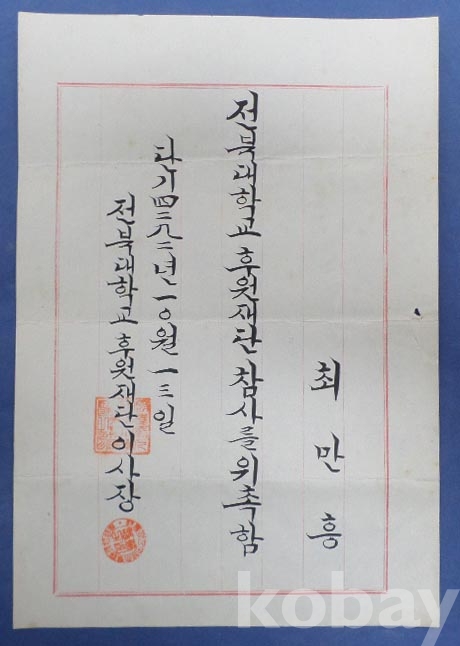 최만흥
전북대학교 후원재단 참사를 위촉함
단기四二八二년 一〇월 一三일
전북대학교 후원재단 이사장
kobay